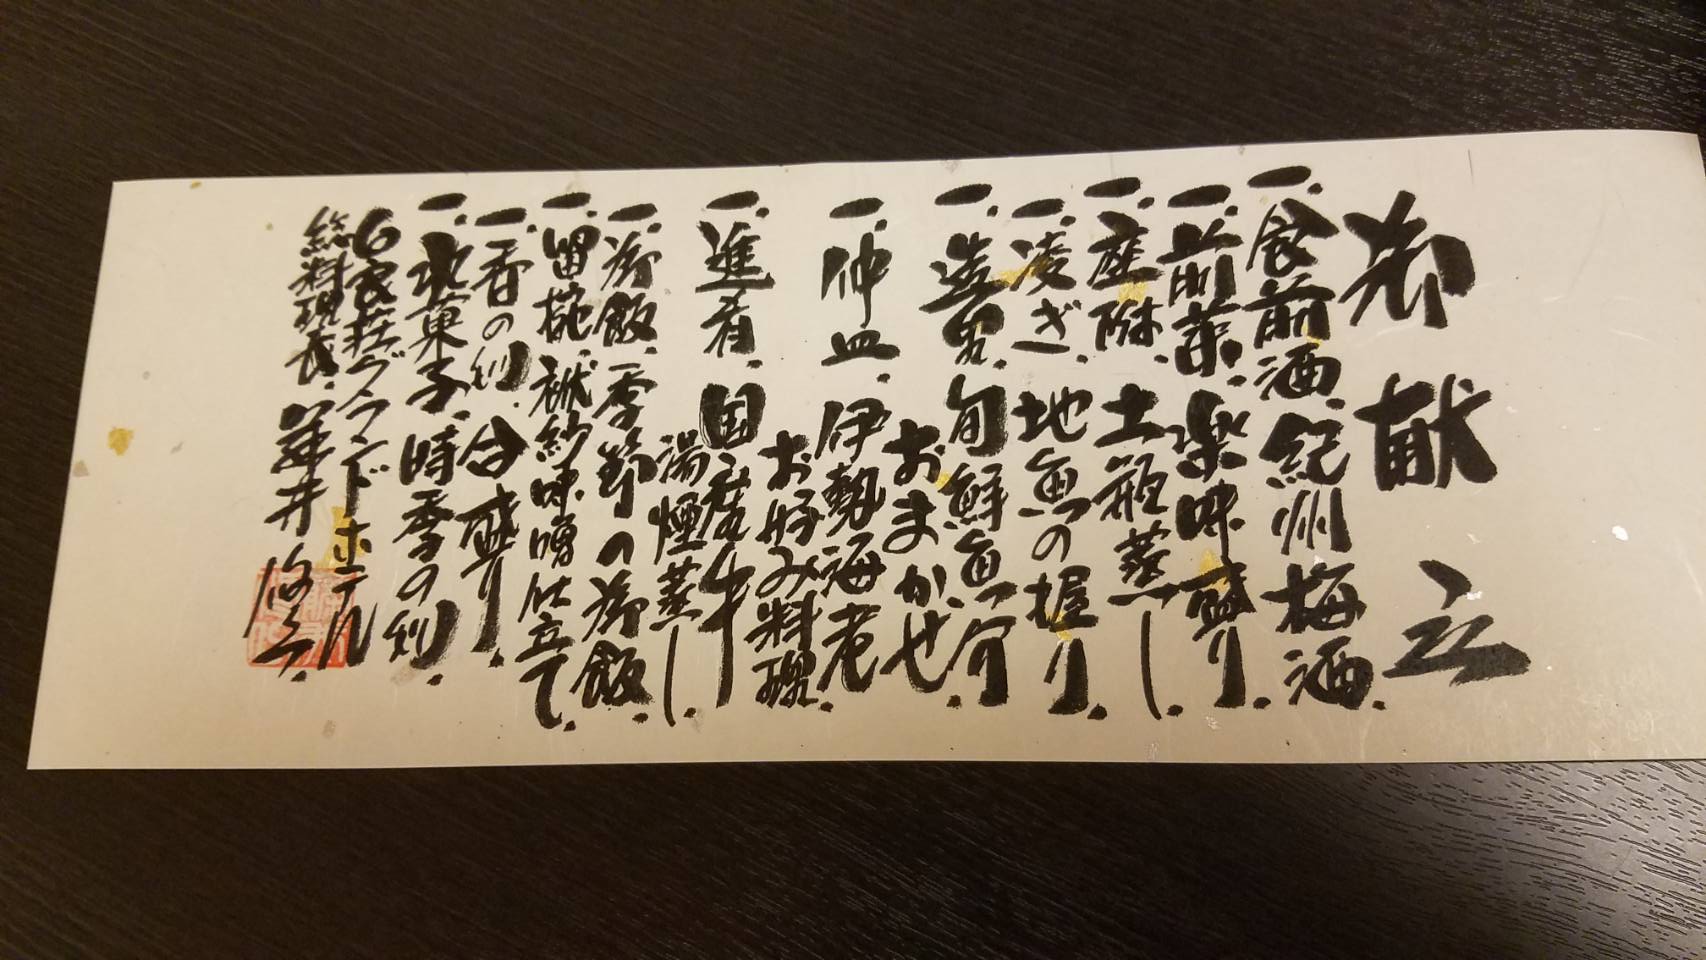 御献立
一、食前酒、紀州梅酒。
一、前菜、楽味盛り。
一、座附、土瓶蒸し。
一、凌ぎ、地魚の握り。
一、造里、旬鮮魚介。
おまかせ
一、仲皿、伊勢海老
お好み料理。
一、進肴、国産牛
湯煙蒸し。
一、御飯、季節の御飯。
一、留椀、袱紗味噌仕立て。
一、香の物、合盛り。
一、水菓子、時季の物。
グランドホテル
総料理長、井